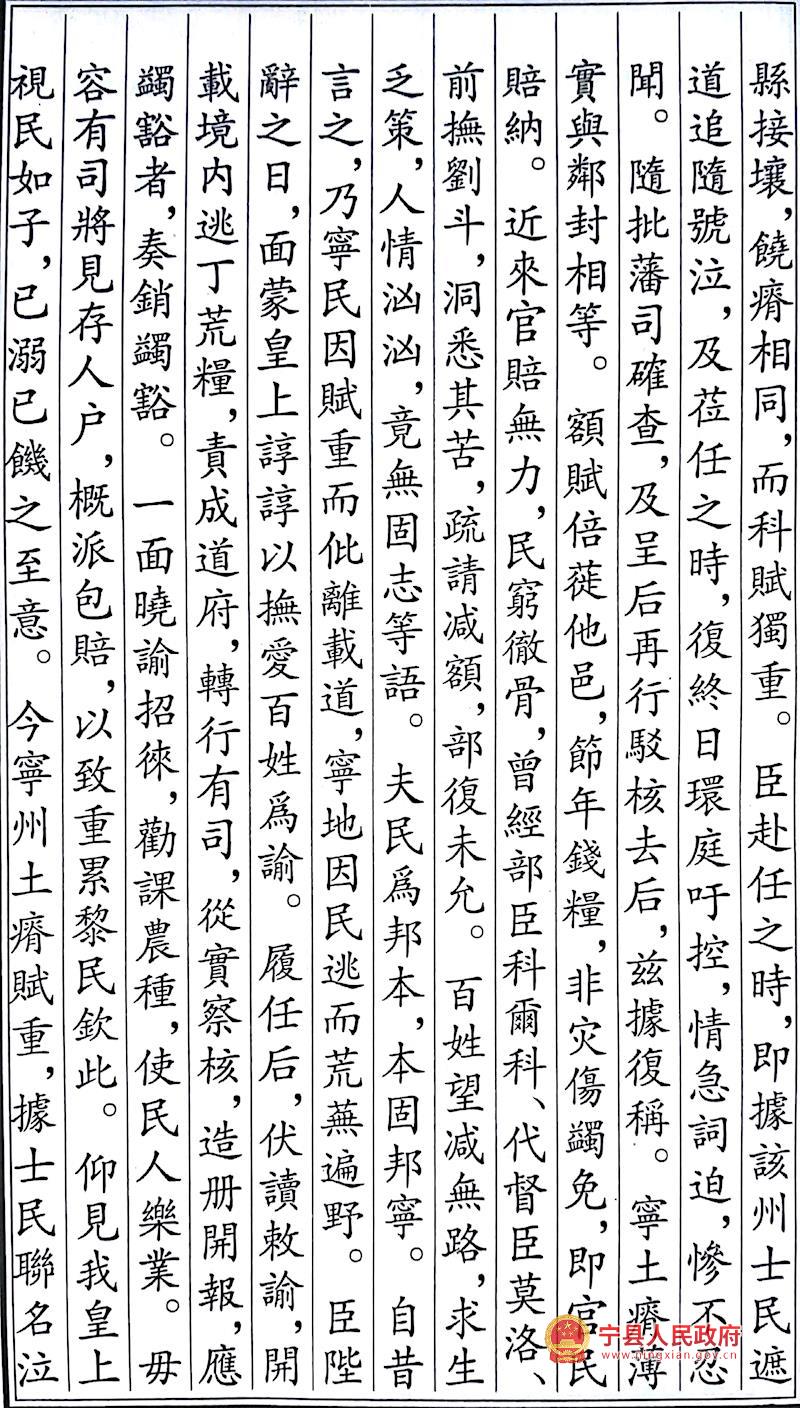 縣接壤，饒瘠相同，而科賦獨重。臣赴任之時，即據該州士民遮
道追隨號泣，及莅任之時，復終日環庭吁控，情急詞迫，慘不忍
聞。隨批藩司確查，及呈后再行駁核去后，兹據復稱。寧土瘠薄
實與鄰封相等。額賦倍蓰他邑，節年錢糧，非灾傷蠲免，即官民
賠納。近來官賠無力，民窮徹骨，曾經部臣科爾科、代督臣莫洛、
前撫劉斗，洞悉其苦，疏請减額，部復未允。百姓望减無路，求生
乏策，人情汹汹，竟無固志等語。夫民爲邦本，本固邦寧。自昔
言之，乃寧民因賦重而仳離載道，寧地因民逃而荒蕪遍野。臣陛
辭之日，面蒙皇上諄諄以撫愛百姓爲諭。履任后，伏讀敕諭，開
載境内逃丁荒糧，責成道府，轉行有司，從實察核，造册開報，應
蠲豁者，奏銷蠲豁。一面曉諭招徠，勸課農種，使民人樂業。毋
容有司將見存人户，概派包賠，以致重累黎民欽此。仰見我皇上
視民如子，已溺已饑之至意。今寧州土瘠賦重，據士民聯名泣
宁县人民政府
www.ningxian.gov.cn